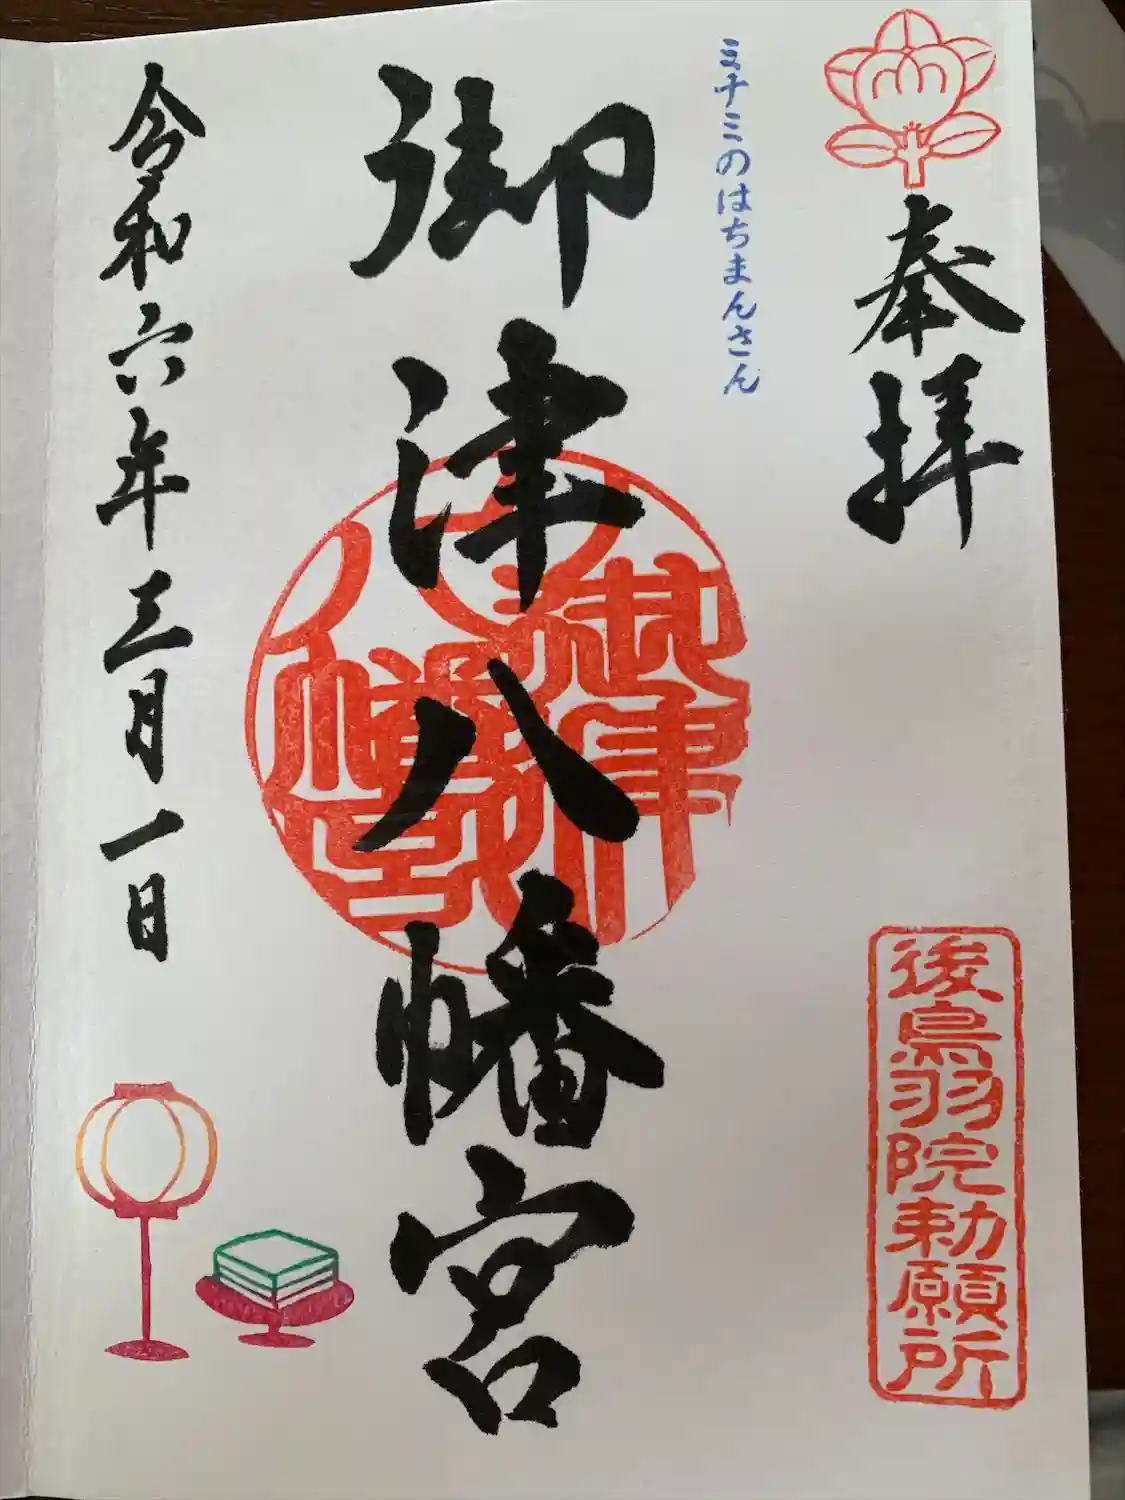 奉拝
後鳥羽院勅願所
ミナミのはちまんさん
御津八幡宮
御津八幡宮
令和六年三月一日